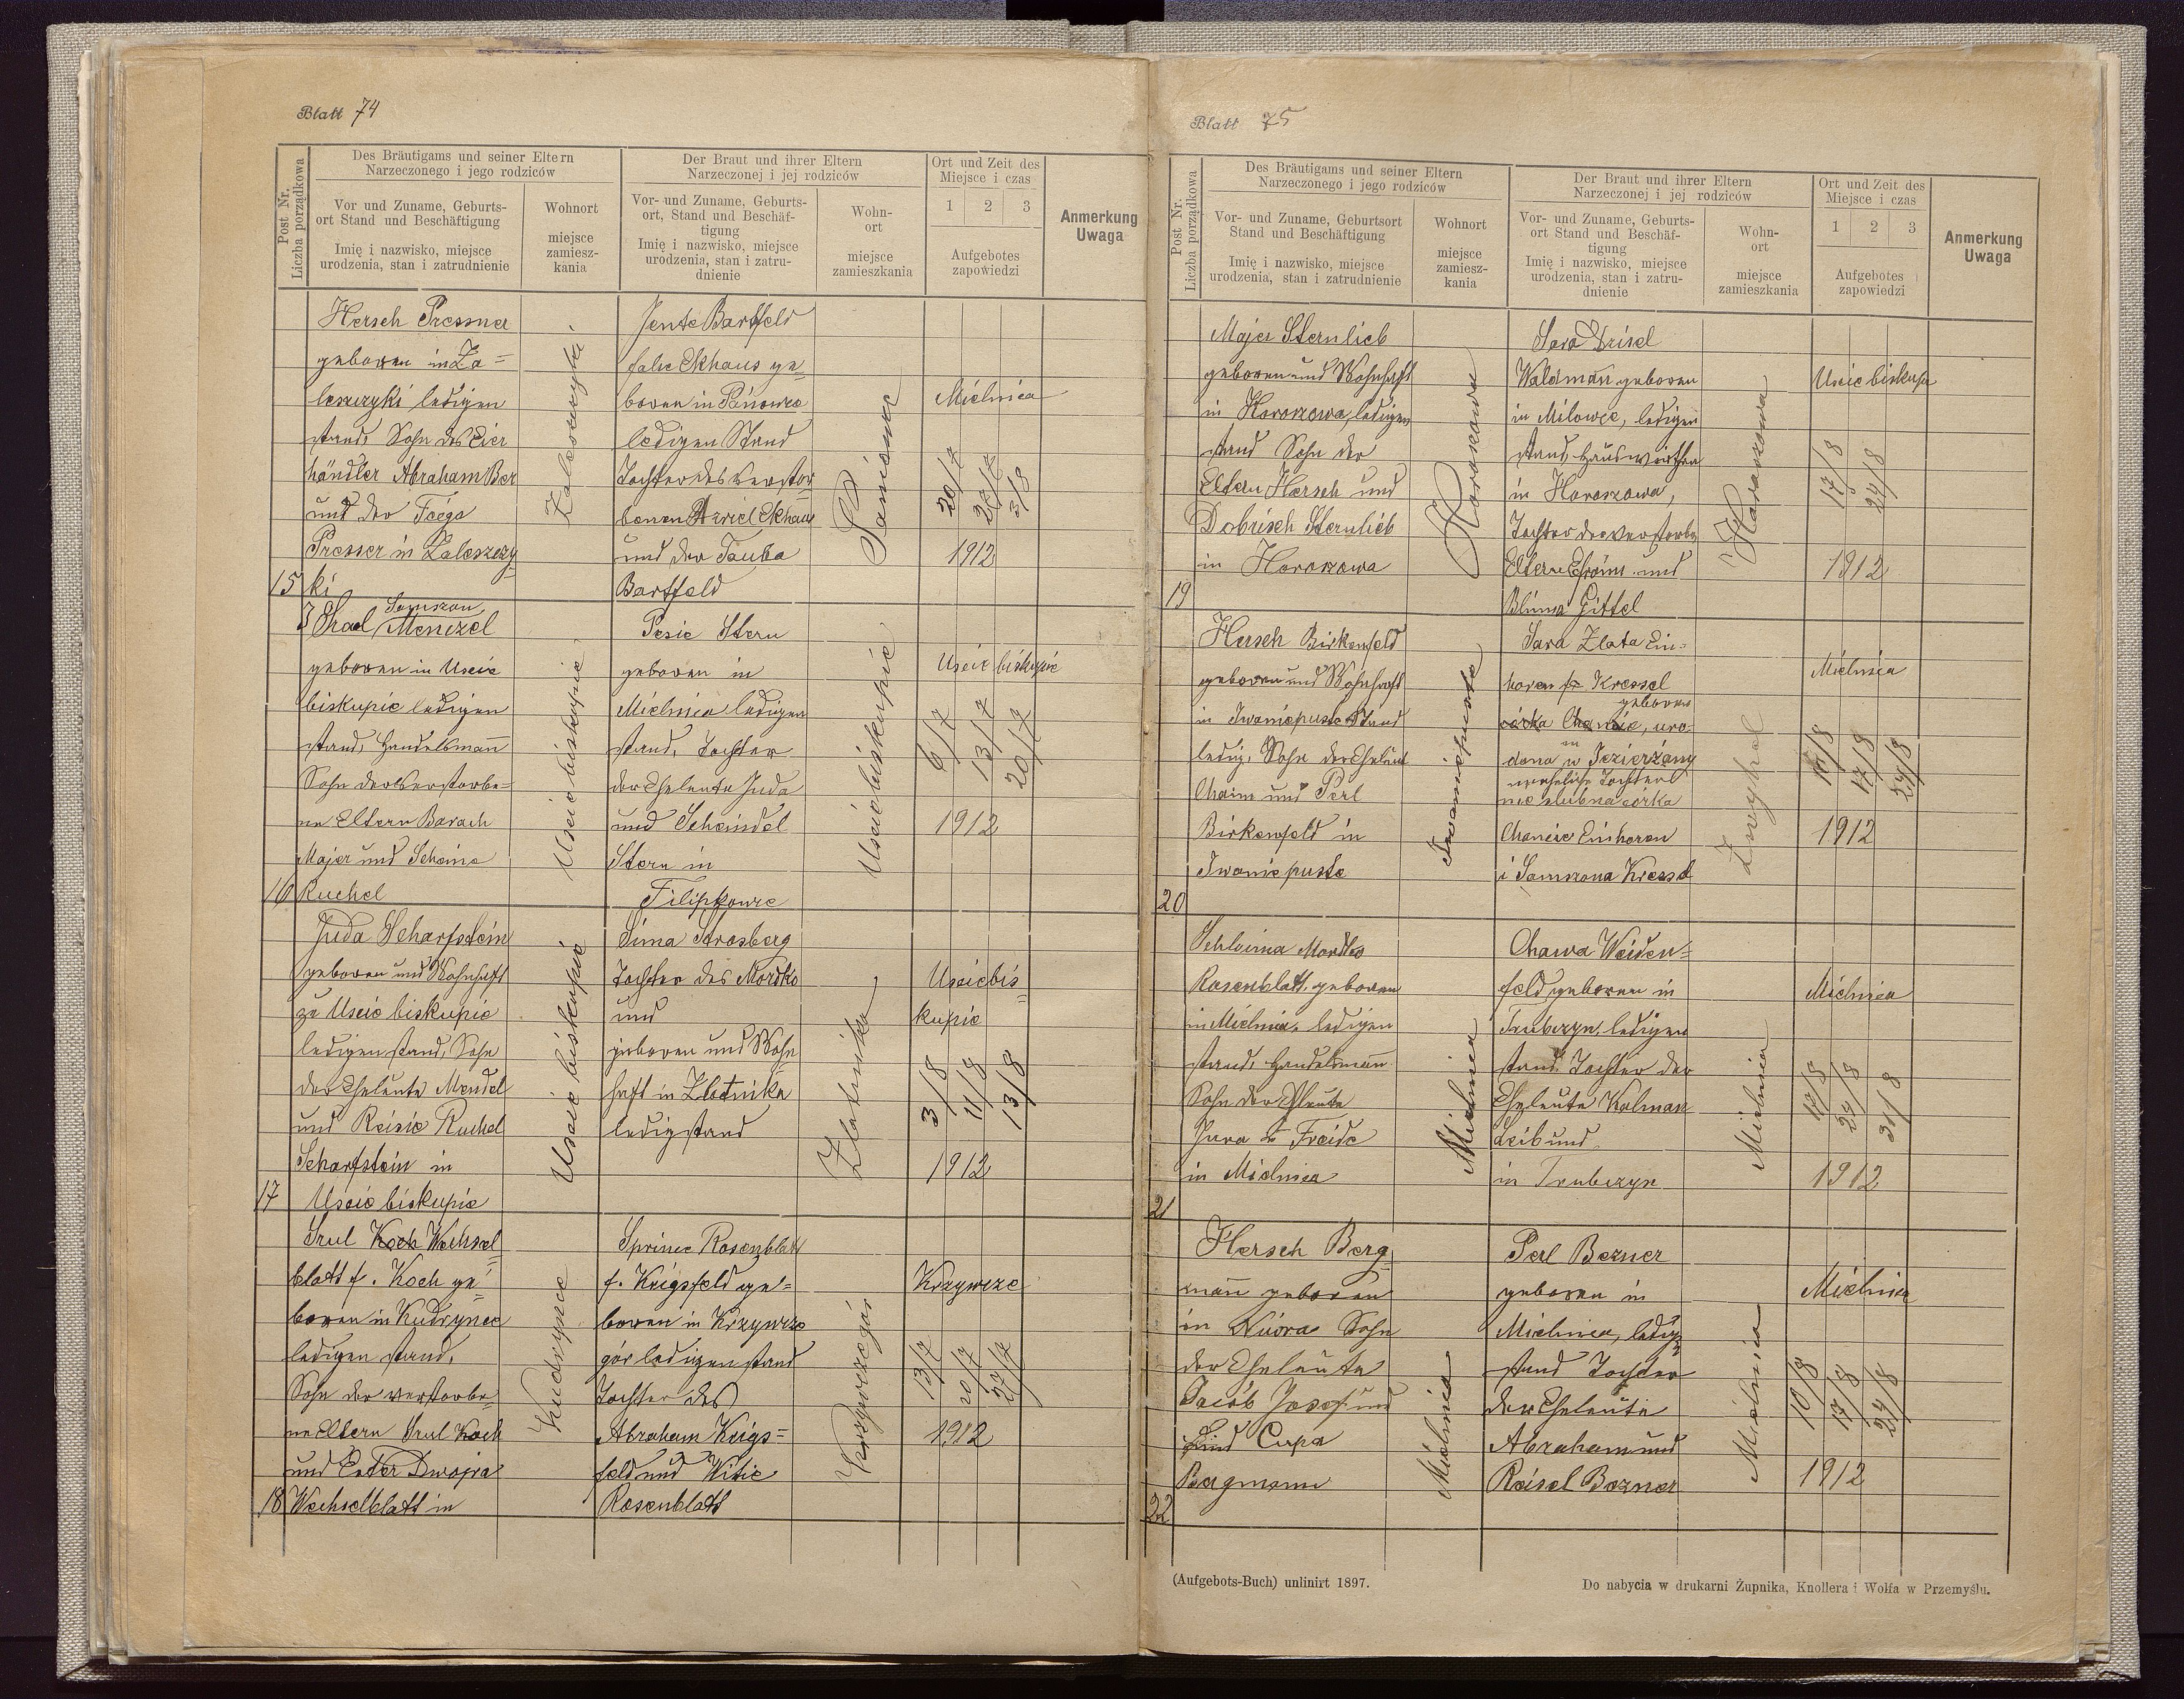 Blatt 74
Post Nr.
Liczba porządkowa
Des Bräutigams und seiner Eltern
Narzeczonego i jego rodziców
Der Braut und ihrer Eltern
Narzeczonej i jej rodziców
Ort und Zeit des
Miejsce i czas
Vor und Zuname, Geburts-
ort Stand und Beschäftigung
Imię i nazwisko, miejsce
urodzenia, stan i zatrudnienie
Wohnort
miejsce
zamiesz-
kania
Vor- und Zuname, Geburts-
ort, Stand und Beschäf-
tigung
Imię i nazwisko, miejsce
urodzenia, stan i zatru-
dnienie
Wohn-
ort
miejsce
zamieszkania
1 2 3
Aufgebotes
zapowiedzi
Anmerkung
Uwaga
15
Hersch Pressner
geboren in Za=
leszczyki ledigen
stand, Sohn des Eier
händler Abraham Ber
und der Feiga
Presser in Zaleszczy
ki
Zaleszczyki
Jente Bartfeld
false Ekhaus ge=
boren in Paniowce
ledigen Stand
Tochter des verstor
benen Azriel Ekhaus
und der Tauba
Bartfeld
Mielnica
20/7
27/7
3/8
1912
16
Israel Samszon Menczel
geboren in Uscie
biskupie ledigen
stand, Handelsmann
Sohn der verstorbe=
ne Eltern Barach
Majer und Scheina
Ruchel
Uscie biskupie
Pesie Stern
geboren in
Mielnica ledigen
stand, Tochter
der Eheleute Juda
und Scheindel
Stern in
Filipkowce
Uscie biskupie
Uscie biskupie
6/7
13/7
20/7
1912
17
Juda Scharfstein
geboren und Wohnhaft
zu Uscie biskupie
ledigen stand, Sohn
der Eheleute Mendel
und Reisie Ruchel
Scharfstein in
Uscie biskupie
Uscie biskupie
Sima Strosberg
Tochter des Mordko
und
geboren und Wohn
haft in Zlotnika
ledigstand
Zlotnika
Uscie bis=
kupie
3/8
11/8
13/8
1912
18
Srul Koch Wechsel=
blatt f. Koch ge=
boren in Kudrynce
ledigen stand,
Sohn der verstorbe
ne Eltern Srul Koch
und Ester Dwojra
Wechselblatt in
Kudrynce
Sprince Rosenblatt
f. Krigsfeld ge=
boren in Krzywcze
gór ledigen stand
Tochter des
Abraham Krigs=
feld und Witie
Rosenblatt
Krzywcze gór
Krzywcze
13/7
20/7
27/7
1912
Blatt 75
Post Nr.
Liczba porządkowa
Des Bräutigams und seiner Eltern
Narzeczonego i jego rodziców
Der Braut und ihrer Eltern
Narzeczonej i jej rodziców
Ort und Zeit des
Miejsce i czas
Vor- und Zuname, Geburtsort
Stand und Beschäftigung
Imię i nazwisko, miejsce
urodzenia, stan i zatrudnienie
Wohnort
miejsce
zamiesz-
kania
Vor- und Zuname, Geburts-
ort Stand und Beschäf-
tigung
Imię i nazwisko, miejsce
urodzenia, stan i zatru-
dnienie
Wohn-
ort
miejsce
zamieszkania
1 2 3
Aufgebotes
zapowiedzi
Anmerkung
Uwaga
19
Majer Sternlieb
geboren und Wohnhaft
in Horoszowa, ledigen
stand Sohn der
Eltern Hersch und
Dobrisch Sternlieb
in Horoszowa
Horoszowa
Sara Drisel
Waldman geboren
in Milowce, ledigen
stand, Hauswirthin
in Horoszowa,
Tochter der verstorbe
Eltern Efroim und
Blima Gittel
Horoszowa
Uscie biskupie
17/8
24/8
1912
20
Hersch Birkenfeld
geboren und Wohnhaft
in Iwaniepuste Stand
ledig, Sohn der Eheleut
Chaim und Perl
Birkenfeld in
Iwaniepuste
Iwaniepuste
Sara Zlata Ein=
horen f. Kressel
geboren
córka Chancie, uro
in
dona w Jezierzany
uneheliche Tochter
nie slubna córka
Chancie Einhoren
i Samszona Kressel
Mielnica
10/8
17/8
24/8
1912
21
Schloima Mordko
Rosenblatt, geboren
in Mielnica, ledigen
stand, Handelsmann
Sohn der Eheleute
Jura & Freide
in Mielnica
Mielnica
Chawa Weiden=
feld geboren in
Trubczyn, ledigen
stand Tochter der
Eheleute Kalman
Leib und
in Trubczyn
Mielnica
Mielnica
17/8
24/8
31/8
1912
22
Hersch Berg
mann geboren
in Niwra Sohn
der Eheleute
Jacob Josef und
Lind Cupa
Bergmann
Mielnica
Perl Bezner
geboren in
Mielnica, ledig
stand Tochter
der Eheleute
Abraham und
Reisel Bezner
Mielnica
Mielnica
10/8
17/8
24/8
1912
(Aufgebots-Buch) unlinirt 1897.
Do nabycia w drukarni Żupnika, Knollera i Wolfa w Przemyślu.